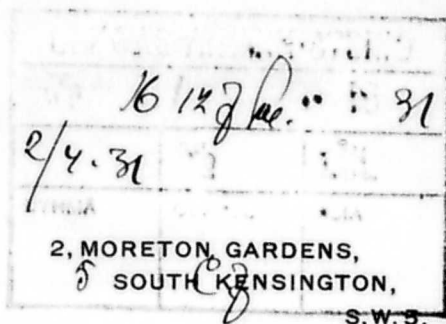 16 31
2/4.31
2, MORETON GARDENS,
SOUTH KENSINGTON,
S.W.5.